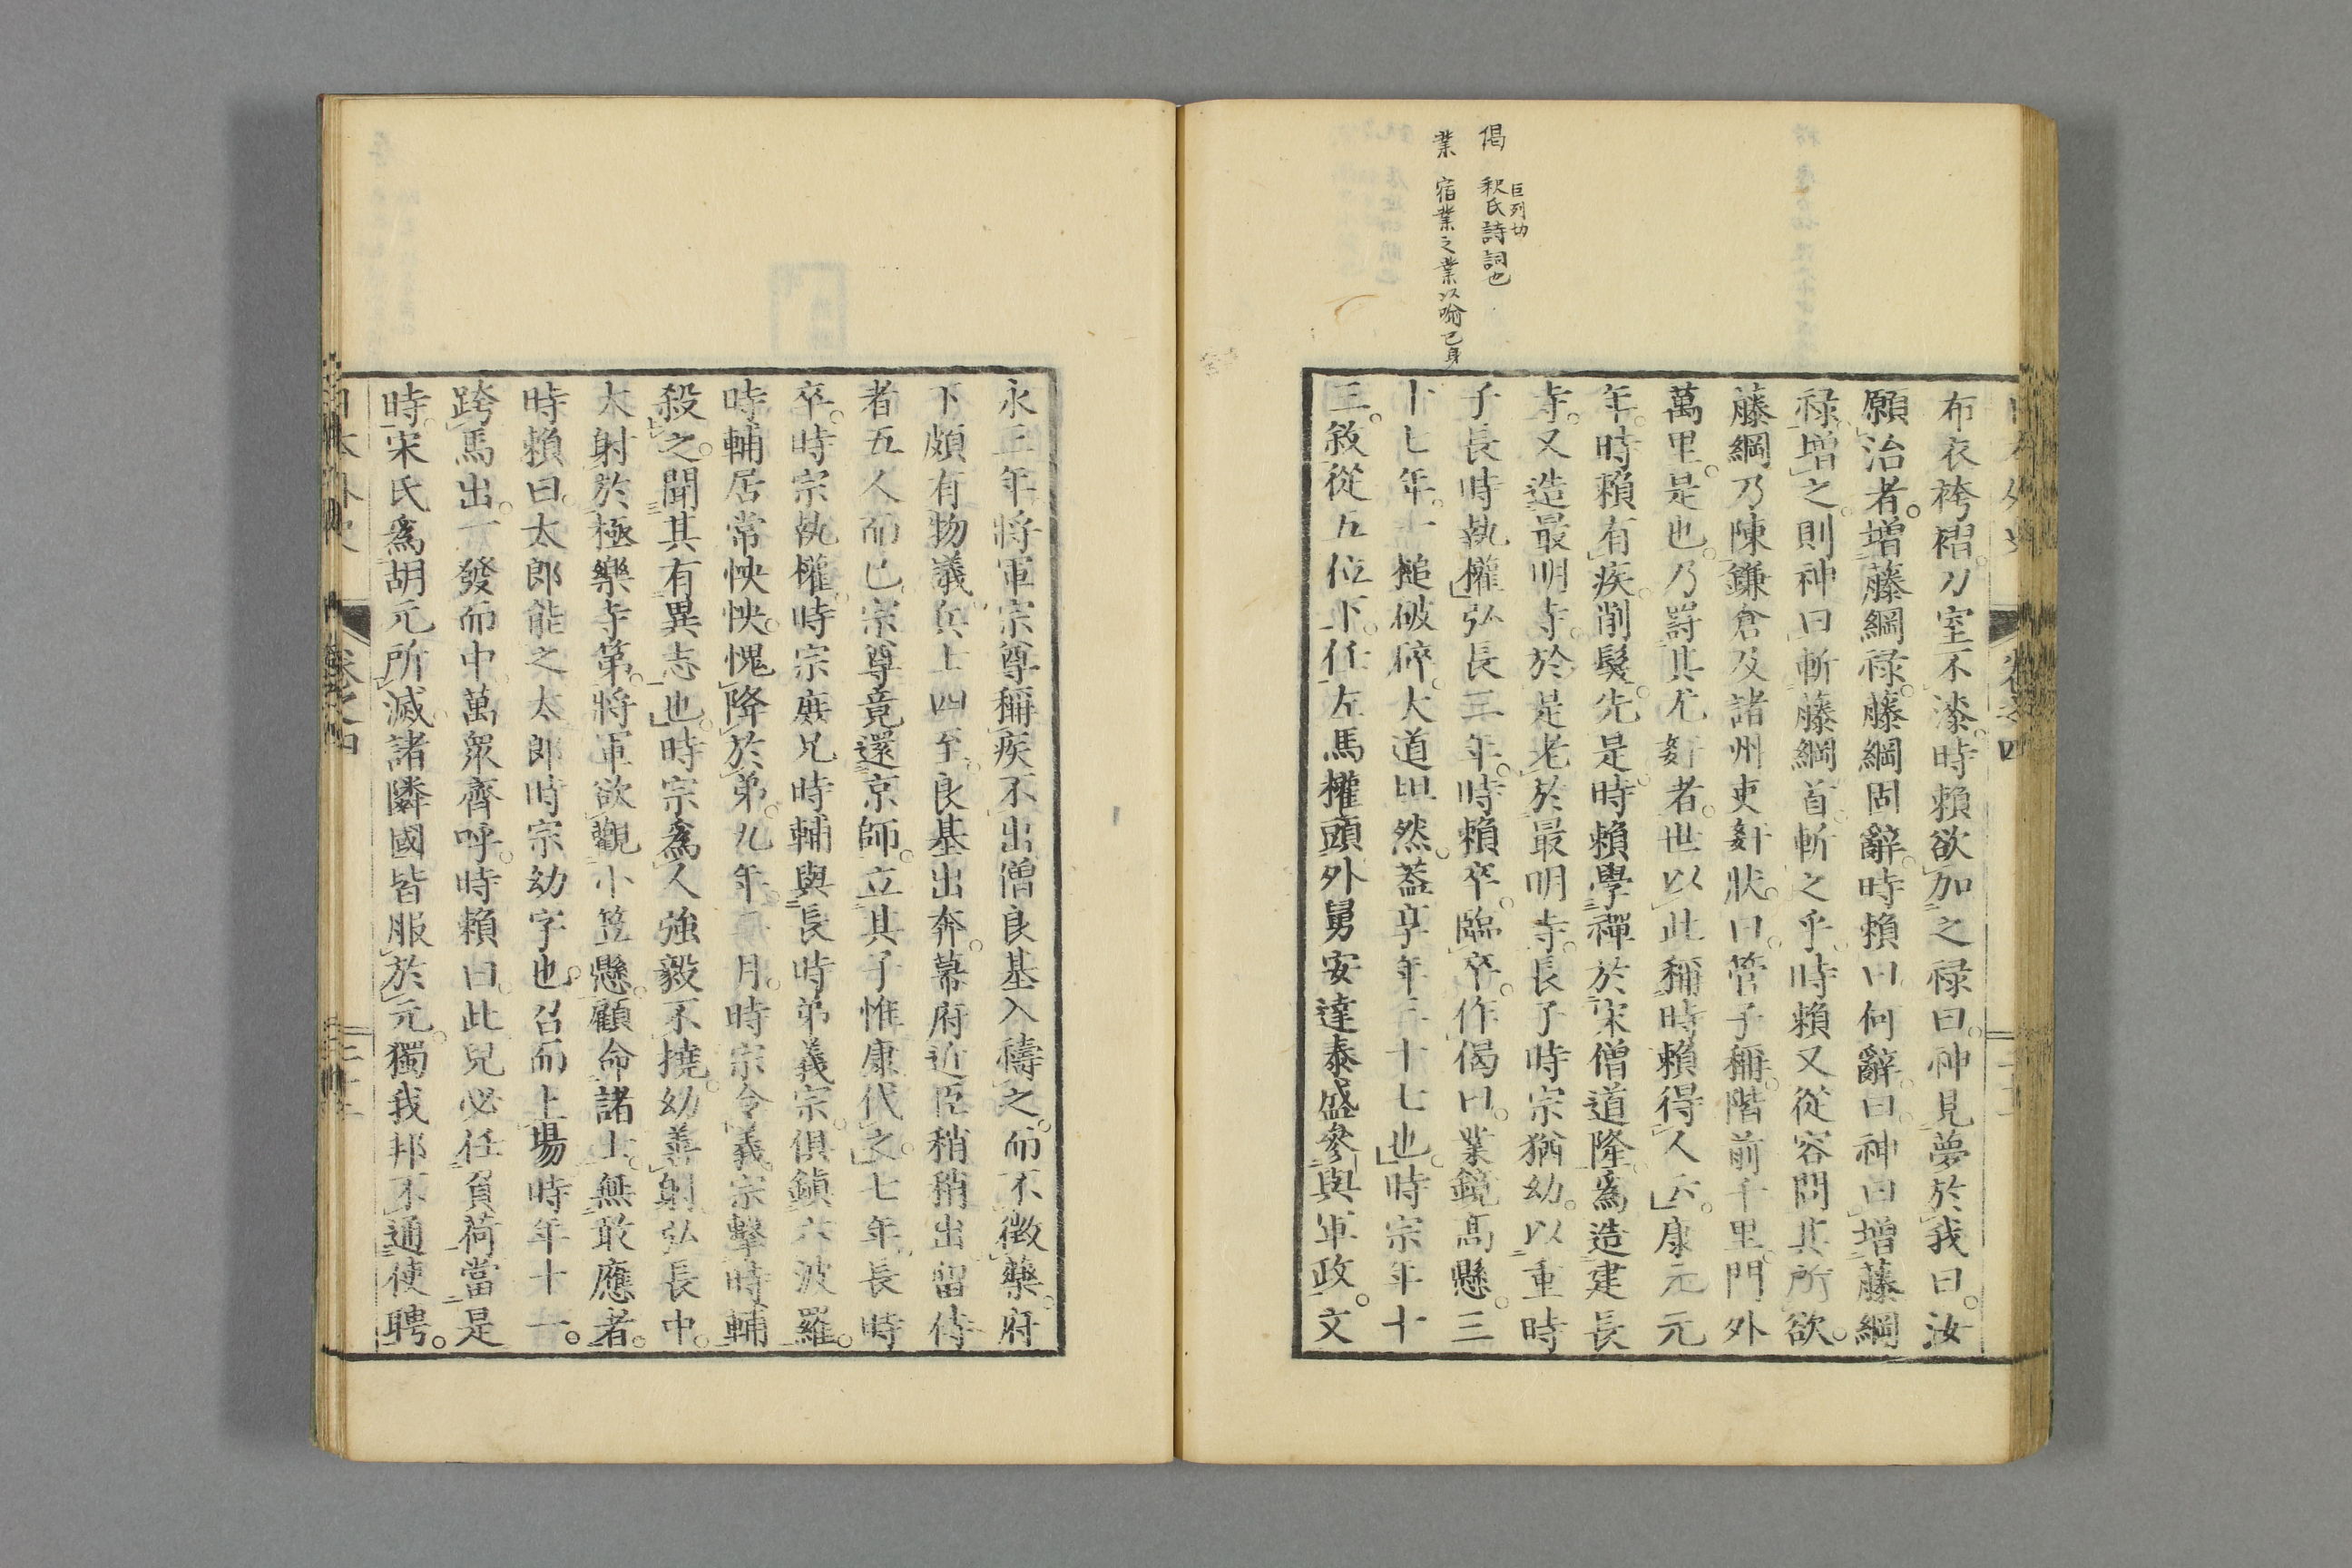 偈 釈氏詩詞也
巨列切
業 宿業之業以喩已身
布衣袴褶。刀室不漆。時頼欲加之禄。曰。神見夢於我曰。汝
願治者。増藤綱禄。藤綱固辭。時頼曰。何辭。曰。神曰増藤綱
禄。増之。則神曰斬藤綱首。斬之乎。時頼又從容問其所欲。
藤綱乃陳鎌倉及諸州吏姧狀。曰。管子稱。階前千里。門外
萬里。是也。乃罸其尤姧者。世以此稱時頼得人云。康元元
年。時頼有疾。削髮。先是。時頼學禪於宋僧道隆。爲造建長
寺。又造最明寺。於是老於最明寺。長子時宗猶幼。以重時
子長時執權。弘長三年。時頼卒。臨卒。作偈曰。業鏡高懸。三
十七年。一槌破碎。大道坦然。葢享年三十七也。時宗年十
三。敘從五位下。任左馬權頭。外舅安達泰盛參與軍政。文
永三年。將軍宗尊稱疾不出。僧良基入禱之。而不徴藥。府
下頗有物議。兵士四至。良基出奔。幕府近臣稍稍出。留侍
者五人而已。宗尊竟還京師。立其子惟康代之。七年。長時
卒。時宗執權。時宗庶兄時輔與長時弟義宗。倶鎭六波羅。
時輔居常怏怏。愧降於弟。九年二月。時宗令義宗撃時輔
殺之。聞其有異志也。時宗爲人強毅不撓。幼善射。弘長中。
大射於極樂寺第。將軍欲觀小笠懸。顧命諸士。無敢應者。
時頼曰。太郎能之。太郎時宗幼字也。召而上場。時年十一。
跨馬出。一發而中。萬衆齊呼。時頼曰。此兒必任負荷。當是
時。宋氏爲胡元所滅。諸隣國皆服於元。獨我邦不通使聘。
日本外史 卷之四